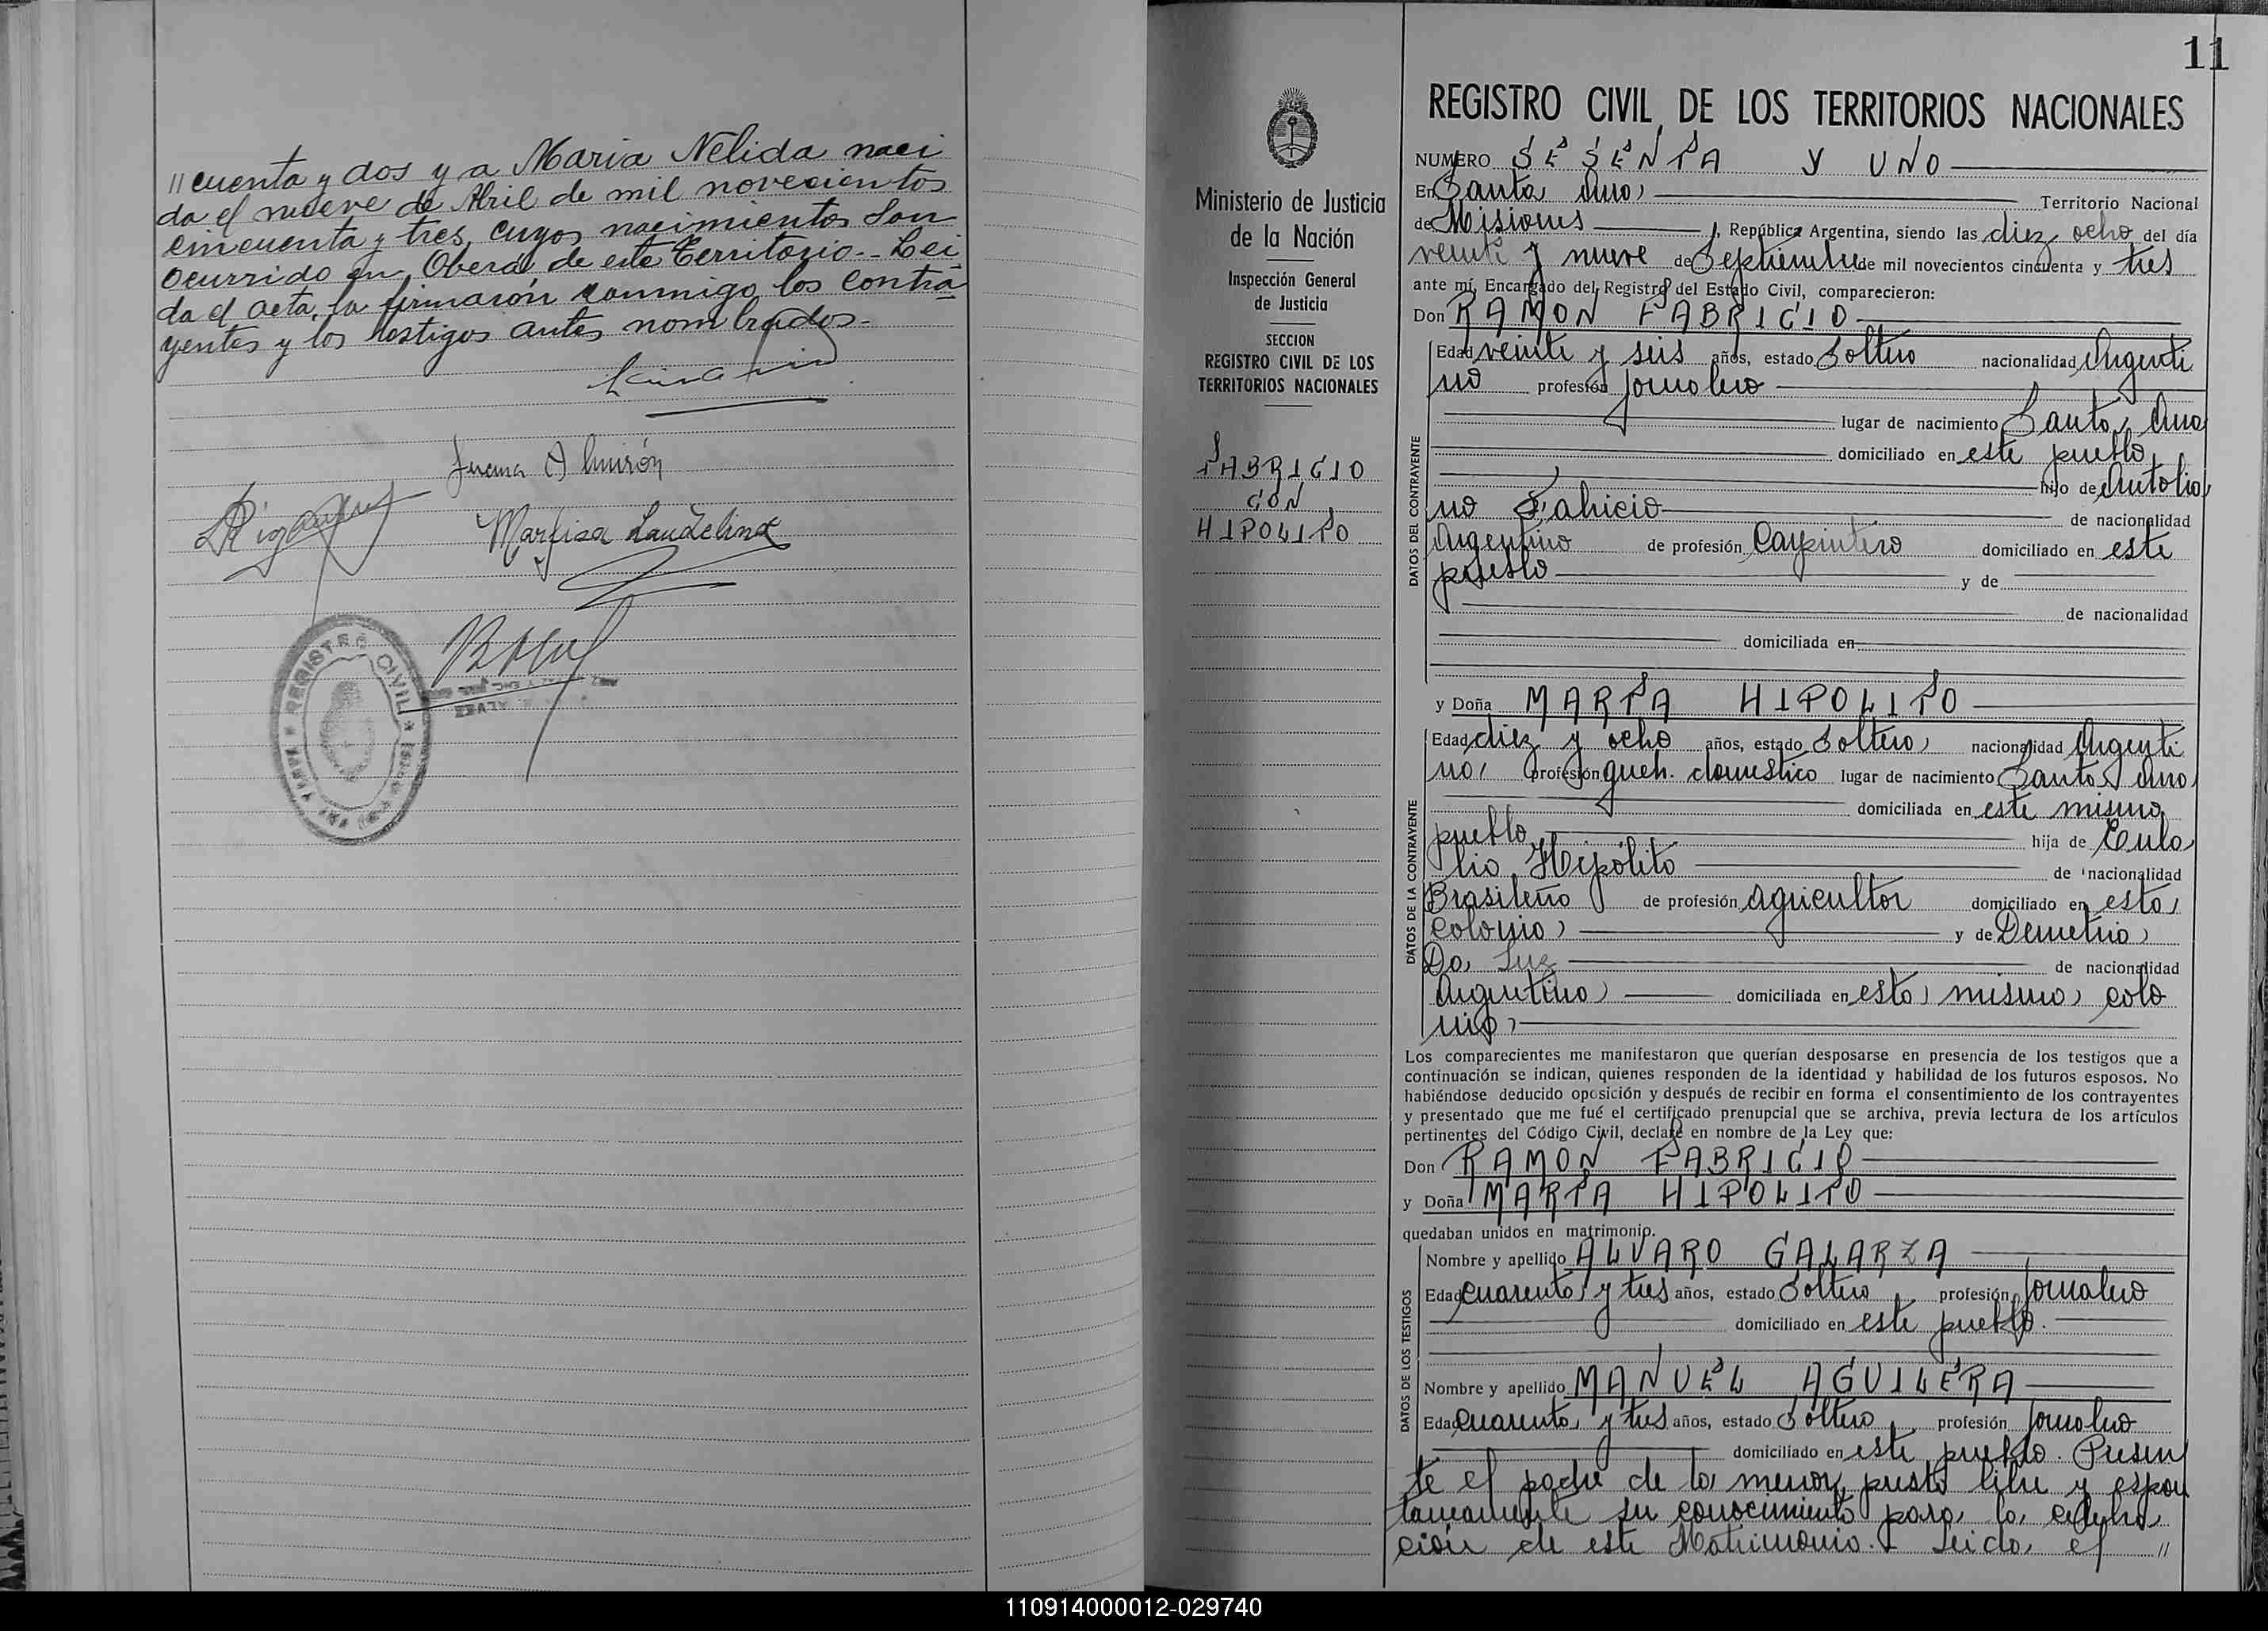 // cuenta y dos y a Maria Nelida naci
da el nueve de Abril de mil novecientos
cincuenta y tres, cuyos nacimientos han
ocurrido en Oberá de este Territorio.- Lei
da el acta, la firmarón conmigo los contra
yentes y los testigos antes nombrados.-
Juana Almirón
Marfisa Laudelina
REGISTRO CIVIL
11
REGISTRO CIVIL DE LOS TERRITORIOS NACIONALES
Ministerio de Justicia
de la Nación
Inspección General
de Justicia
SECCION
REGISTRO CIVIL DE LOS
TERRITORIOS NACIONALES
FABRICIO
CON
HIPOLITO
NUMERO SESENTA Y UNO
En Santa Ana, Territorio Nacional
de Misiones, República Argentina, siendo las diez ocho del día
veinte y nueve de Septiembre de mil novecientos cincuenta y tres
ante mí, Encargado del Registro del Estado Civil, comparecieron:
Don RAMON FABRICIO
DATOS DEL CONTRAYENTE
Edad veinte y seis años, estado Soltero nacionalidad Argenti
no profesión jornalero
lugar de nacimiento Santa Ana
domiciliado en este pueblo
hijo de Antolia
no Fabricio de nacionalidad
Argentino de profesión Carpintero domiciliado en este
pueblo y de
de nacionalidad
domiciliada en
y Doña MARTA HIPOLITO
DATOS DE LA CONTRAYENTE
Edad diez y ocho años, estado Soltera nacionalidad Argenti
na, profesión queh. domestico lugar de nacimiento Santa Ana
domiciliada en este mismo
pueblo hija de Eula
lio Hipólito de nacionalidad
Brasileño de profesión agricultor domiciliado en esta
Colonia y de Demetria
Da Luz de nacionalidad
Argentina domiciliada en esta misma colo
nia
Los comparecientes me manifestaron que querían desposarse en presencia de los testigos que a
continuación se indican, quienes responden de la identidad y habilidad de los futuros esposos. No
habiéndose deducido oposición y después de recibir en forma el consentimiento de los contrayentes
y presentado que me fué el certificado prenupcial que se archiva, previa lectura de los artículos
pertinentes del Código Civil, declaré en nombre de la Ley que:
Don RAMON FABRICIO
y Doña MARTA HIPOLITO
quedaban unidos en matrimonio.
DATOS DE LOS TESTIGOS
Nombre y apellido ALVARO GALARZA
Edad cuarenta y tres años, estado Soltero profesión jornalero
domiciliado en este pueblo.
Nombre y apellido MANUEL AGUILERA
Edad cuarenta y tres años, estado Soltero profesión jornalero
domiciliado en este pueblo. Presen
te el padre de la menor, presta libre y espon
taneamente su conocimiento para la celebra
ción de este Matrimonio. Leida el //
110914000012-029740